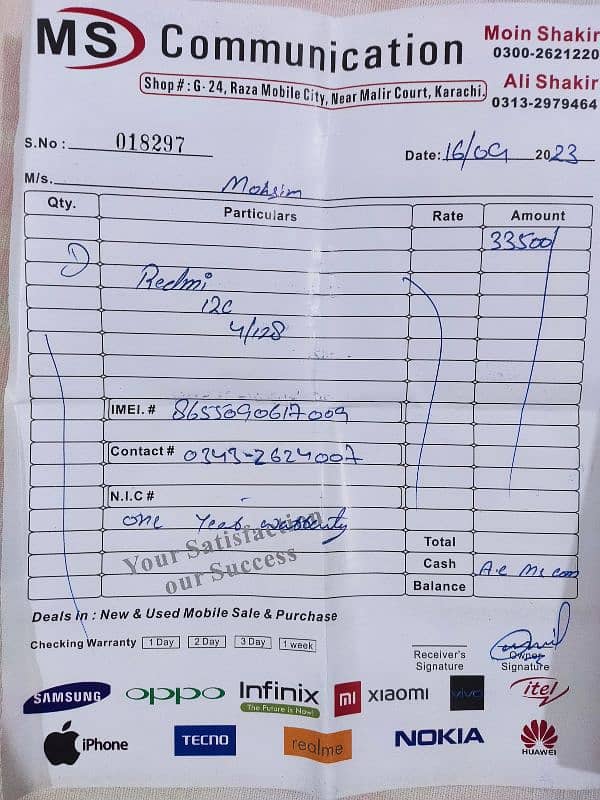 MS Communication
Moin Shakir
0300-2621220
Shop#: G-24, Raza Mobile City, Near Malir Court, Karachi.
Ali Shakir
0313-2979464
S.No: 018297
Date: 16/09 2023
M/s. Mohsim
Qty. Particulars Rate Amount
33500/
Redmi
12C
4/128
IMEI.# 8655090617009
Contact# 0343-2624007
N.I.C# -
one year warrenty
Your Satisfaction
our Success
Total
Cash
Balance
Deals in : New & Used Mobile Sale & Purchase
Checking Warranty 1 Day 2 Day 3 Day 1 week
Receiver's Signature
Owner Signature
SAMSUNG oppo Infinix The Future is Now! mi xiaomi vivo itel
iPhone TECNO realme NOKIA HUAWEI